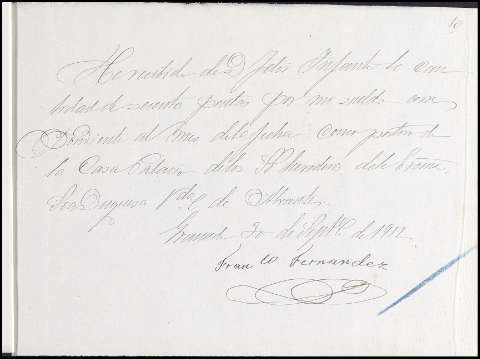 10
He recibido de D. Felix Infante la can
tidad de sesenta pesetas por mi sueldo corres
pondiente al mes de la fecha como portero de
la Casa Palacio de los de la Exma.
Sra Duquesa Vda de Abrantes.
Granada 30 de Sepbre de 1912.
Franco Fernandez